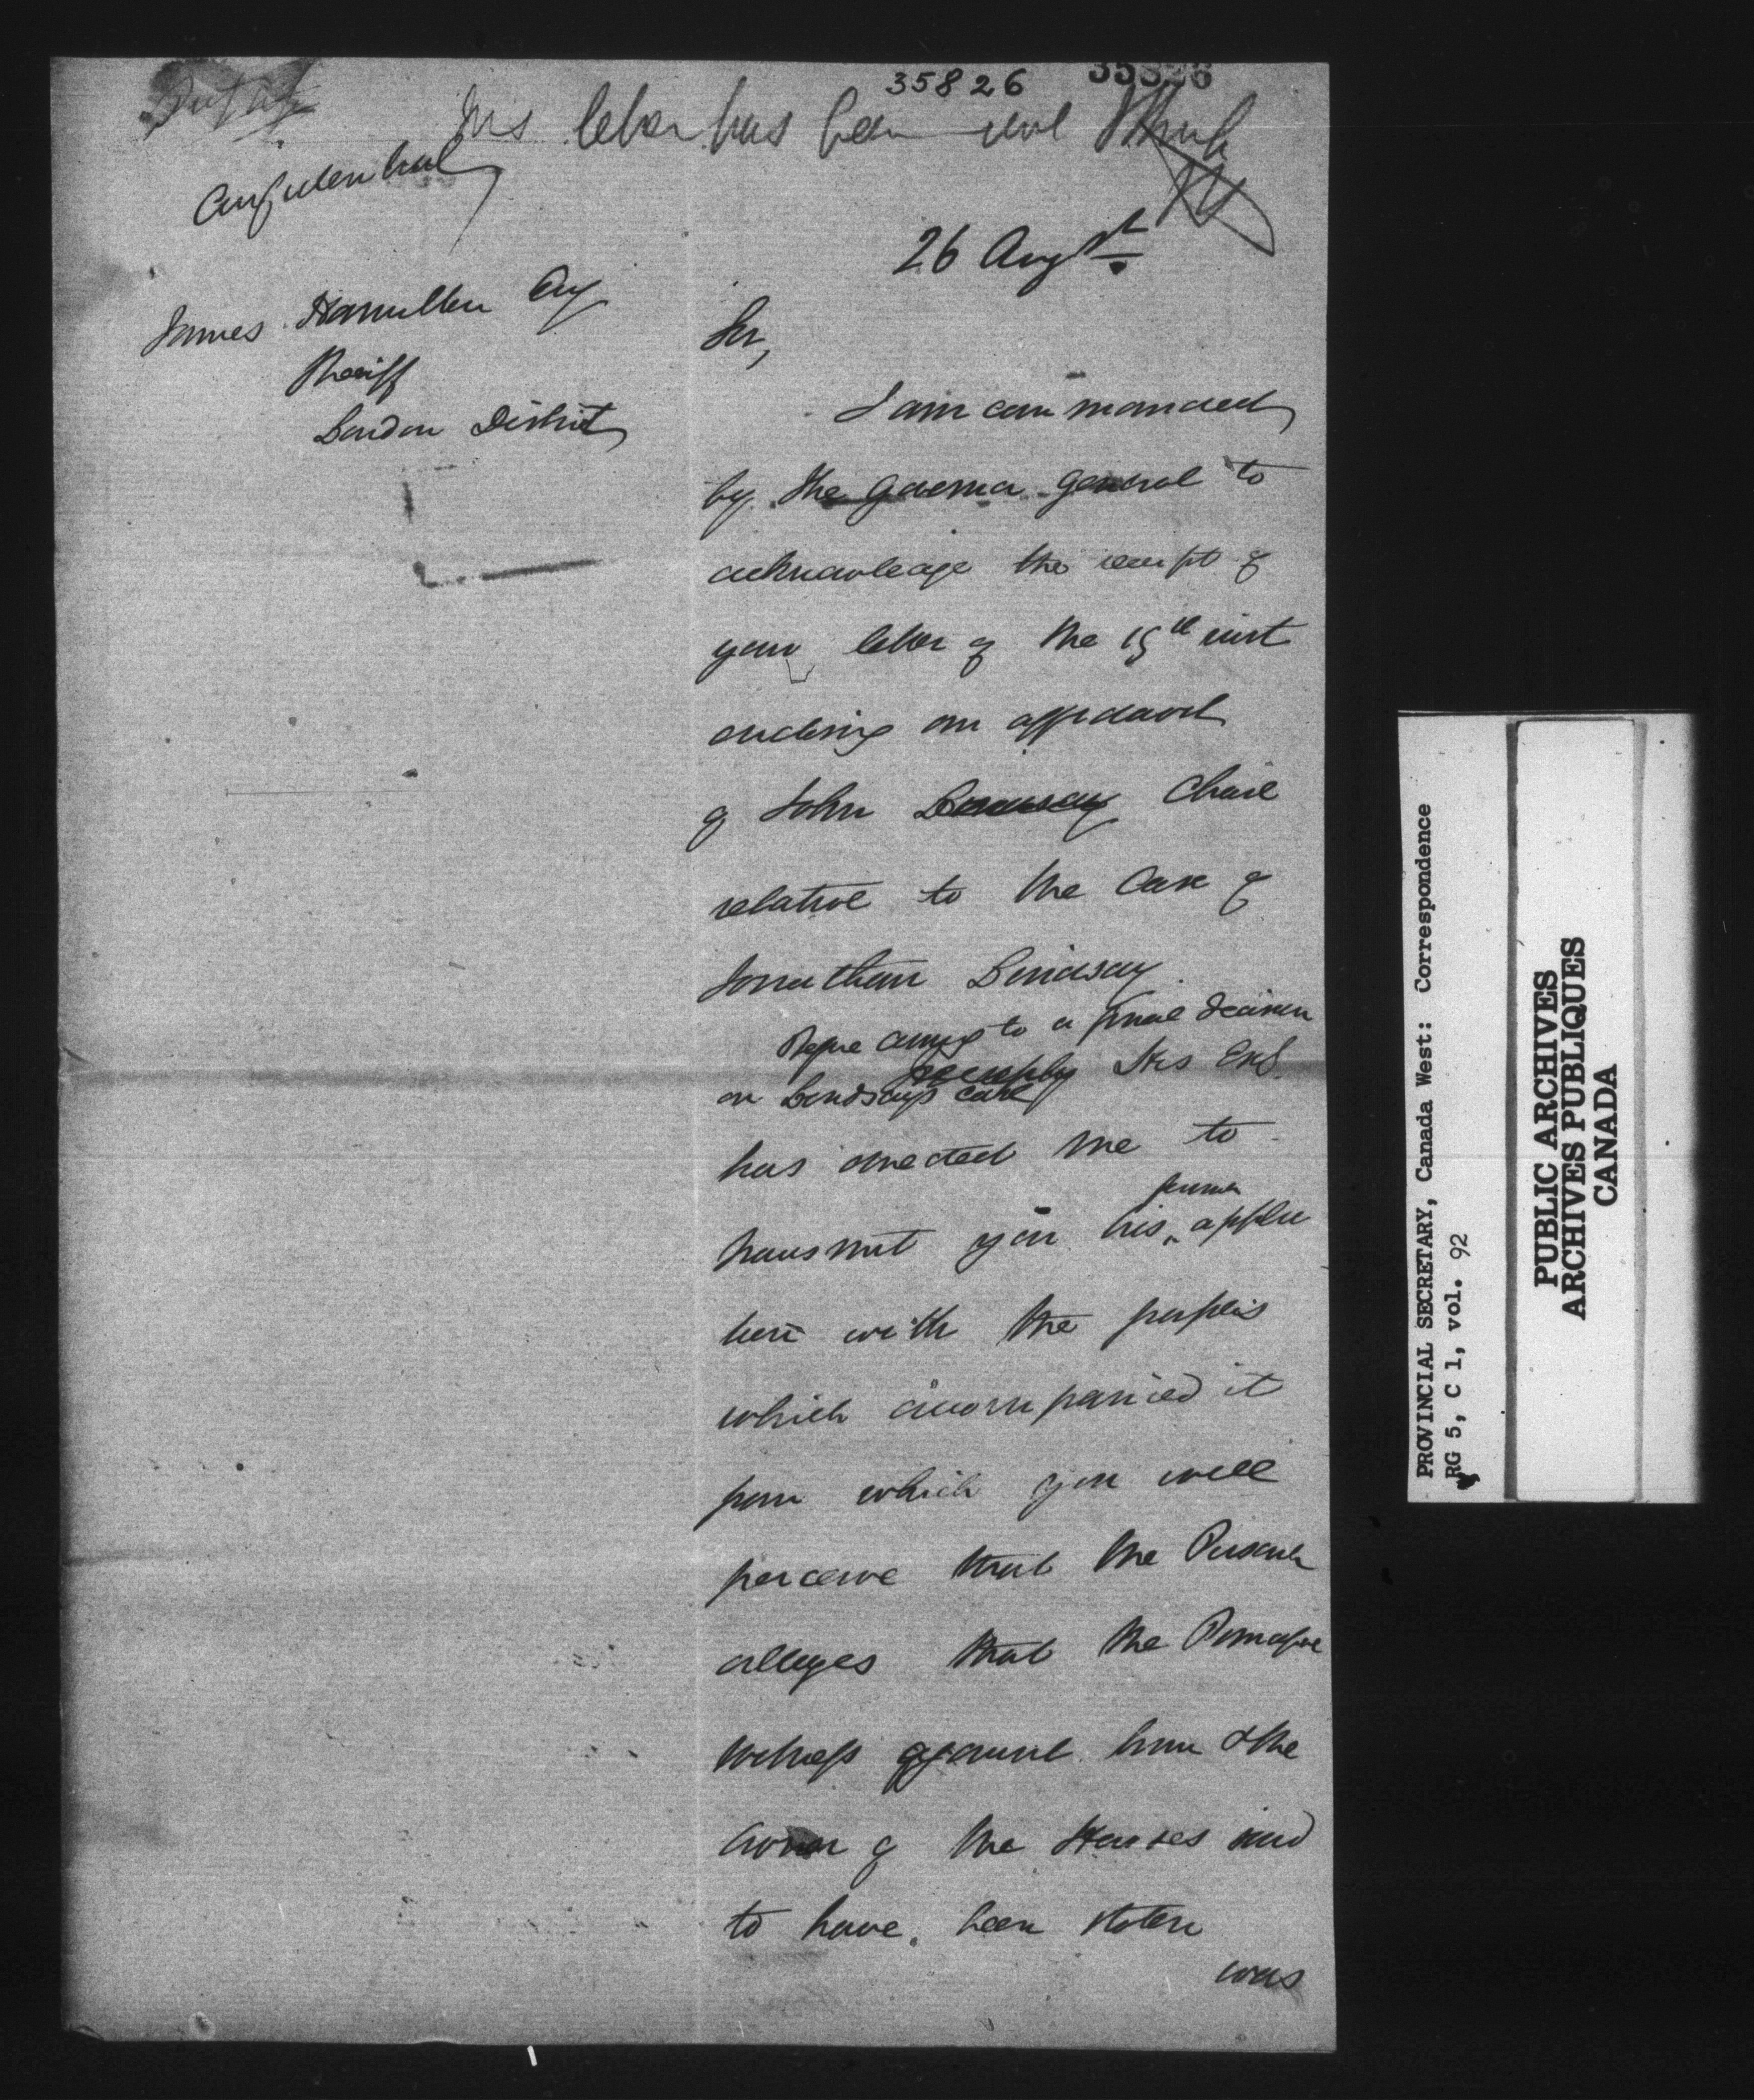 35826 35826
This letter has been sent
Confidential
26 Augst
James Hamilton Esq
Sheriff
London District
Sir,
I am commanded
by the Governor General to
acknowledge the receipt of
your letter of the 15th inst
enclosing an affidavit
of John Chase
relative to the Case of
Jonathan Lindsay
Before coming to a final decision
on Lindsay's case His Exc
has directed me to
transmit you his former applic
tion with the papers
which accompanied it
from which you will
perceive that the Prisoner
alleges that the Principal
witness against him & the
owner of the Horses said
to have been stolen
was
PROVINCIAL SECRETARY, Canada West: Correspondence
RG 5, C 1, vol. 92
PUBLIC ARCHIVES
ARCHIVES PUBLIQUES
CANADA